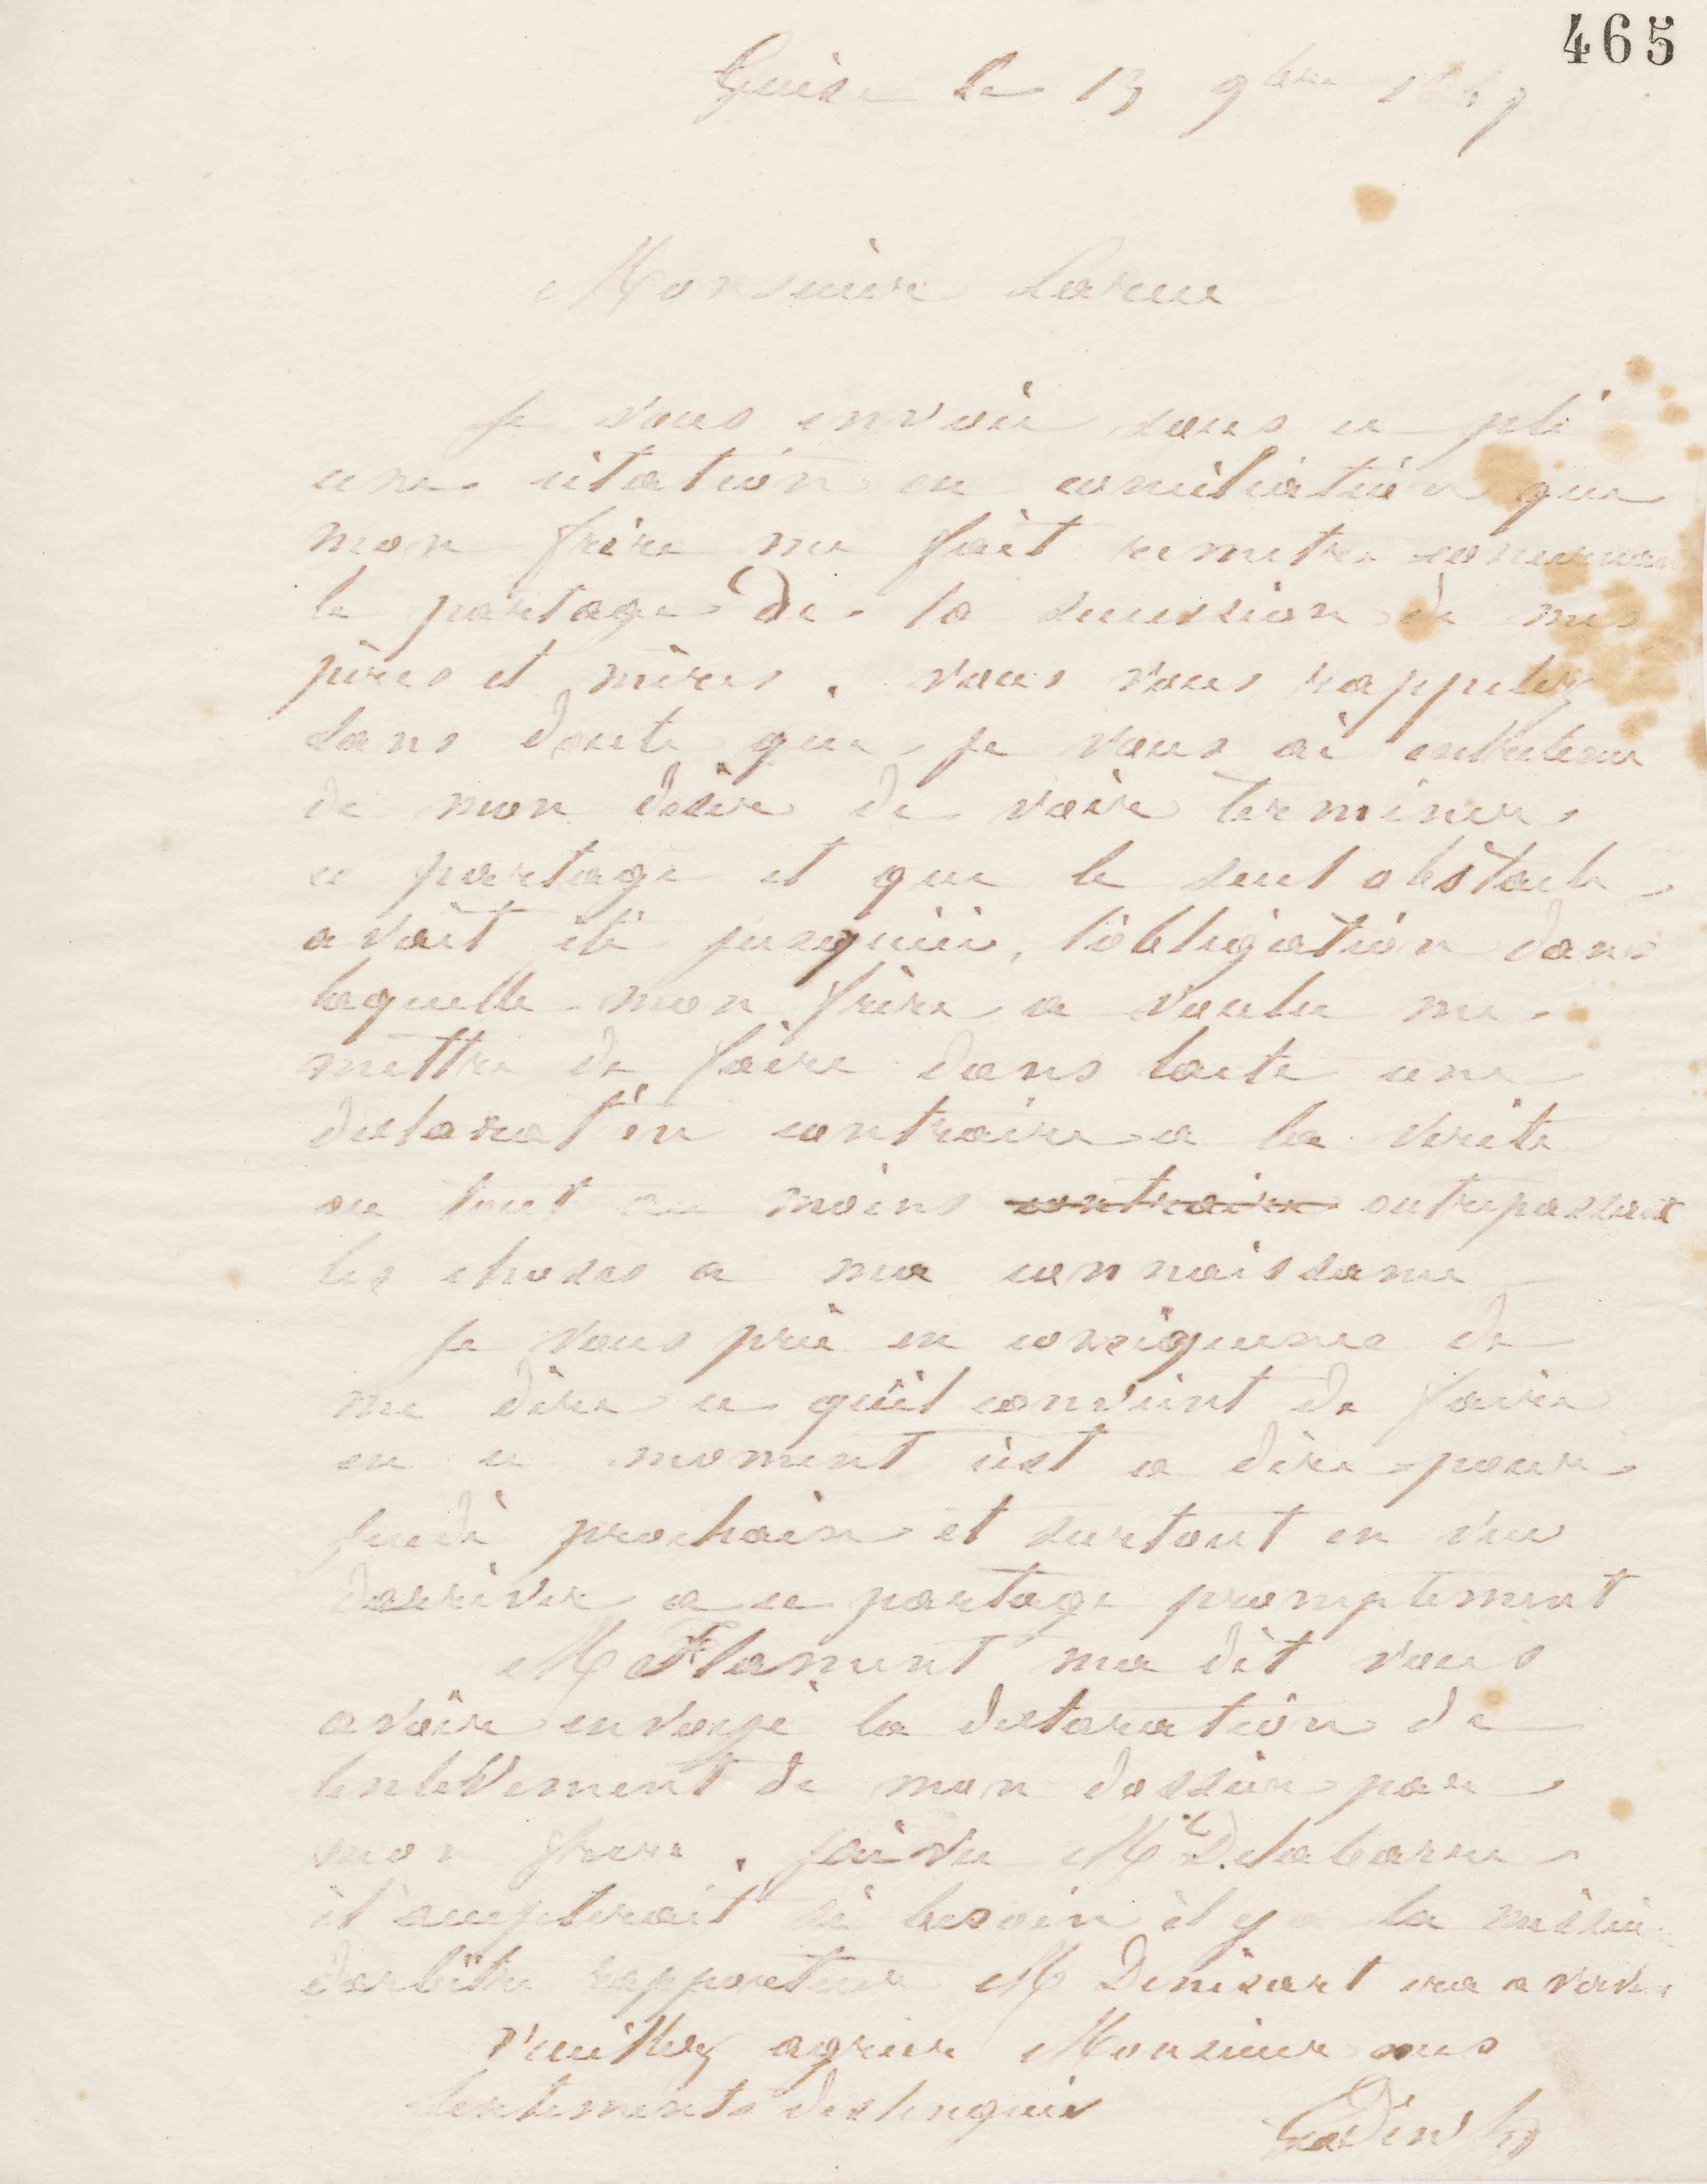 465
Guise le 13 9bre 186
Monsieur Larue
Je vous envoie sous ce pli
une citation en conciliation que
mon frère me fait remettre concernant
le partage de la succession de mes
pères et mères. vous vous rappelez
sans doute que je vous ai entretenu
de mon désir de voir terminer
ce partage et que le seul obstacle
avait été jusqu'ici, l'obligation dans
laquelle mon frère a voulu me
mettre de faire dans l'acte une
declaration contraire a la vérité
ou tout au moins contraire outrepassant
les choses a ma connaissance
Je vous prie en conséquence de
me dire ce qu'il convient de faire
en ce moment c'est a dire pour
jeudi prochain et surtout en vue
darriver a ce partage promptement
M Flament ma dit vous
avoir envoyé la declaration de
lenlèvement de mon dossier par
mon frère. j'ai vu Me Delabarre
il accepterait si besoin il y a la mission
darbitre rapporteur M Denisart ira a Vervins
Veuillez agréer Monsieur mes
sentiments distingués
Godin